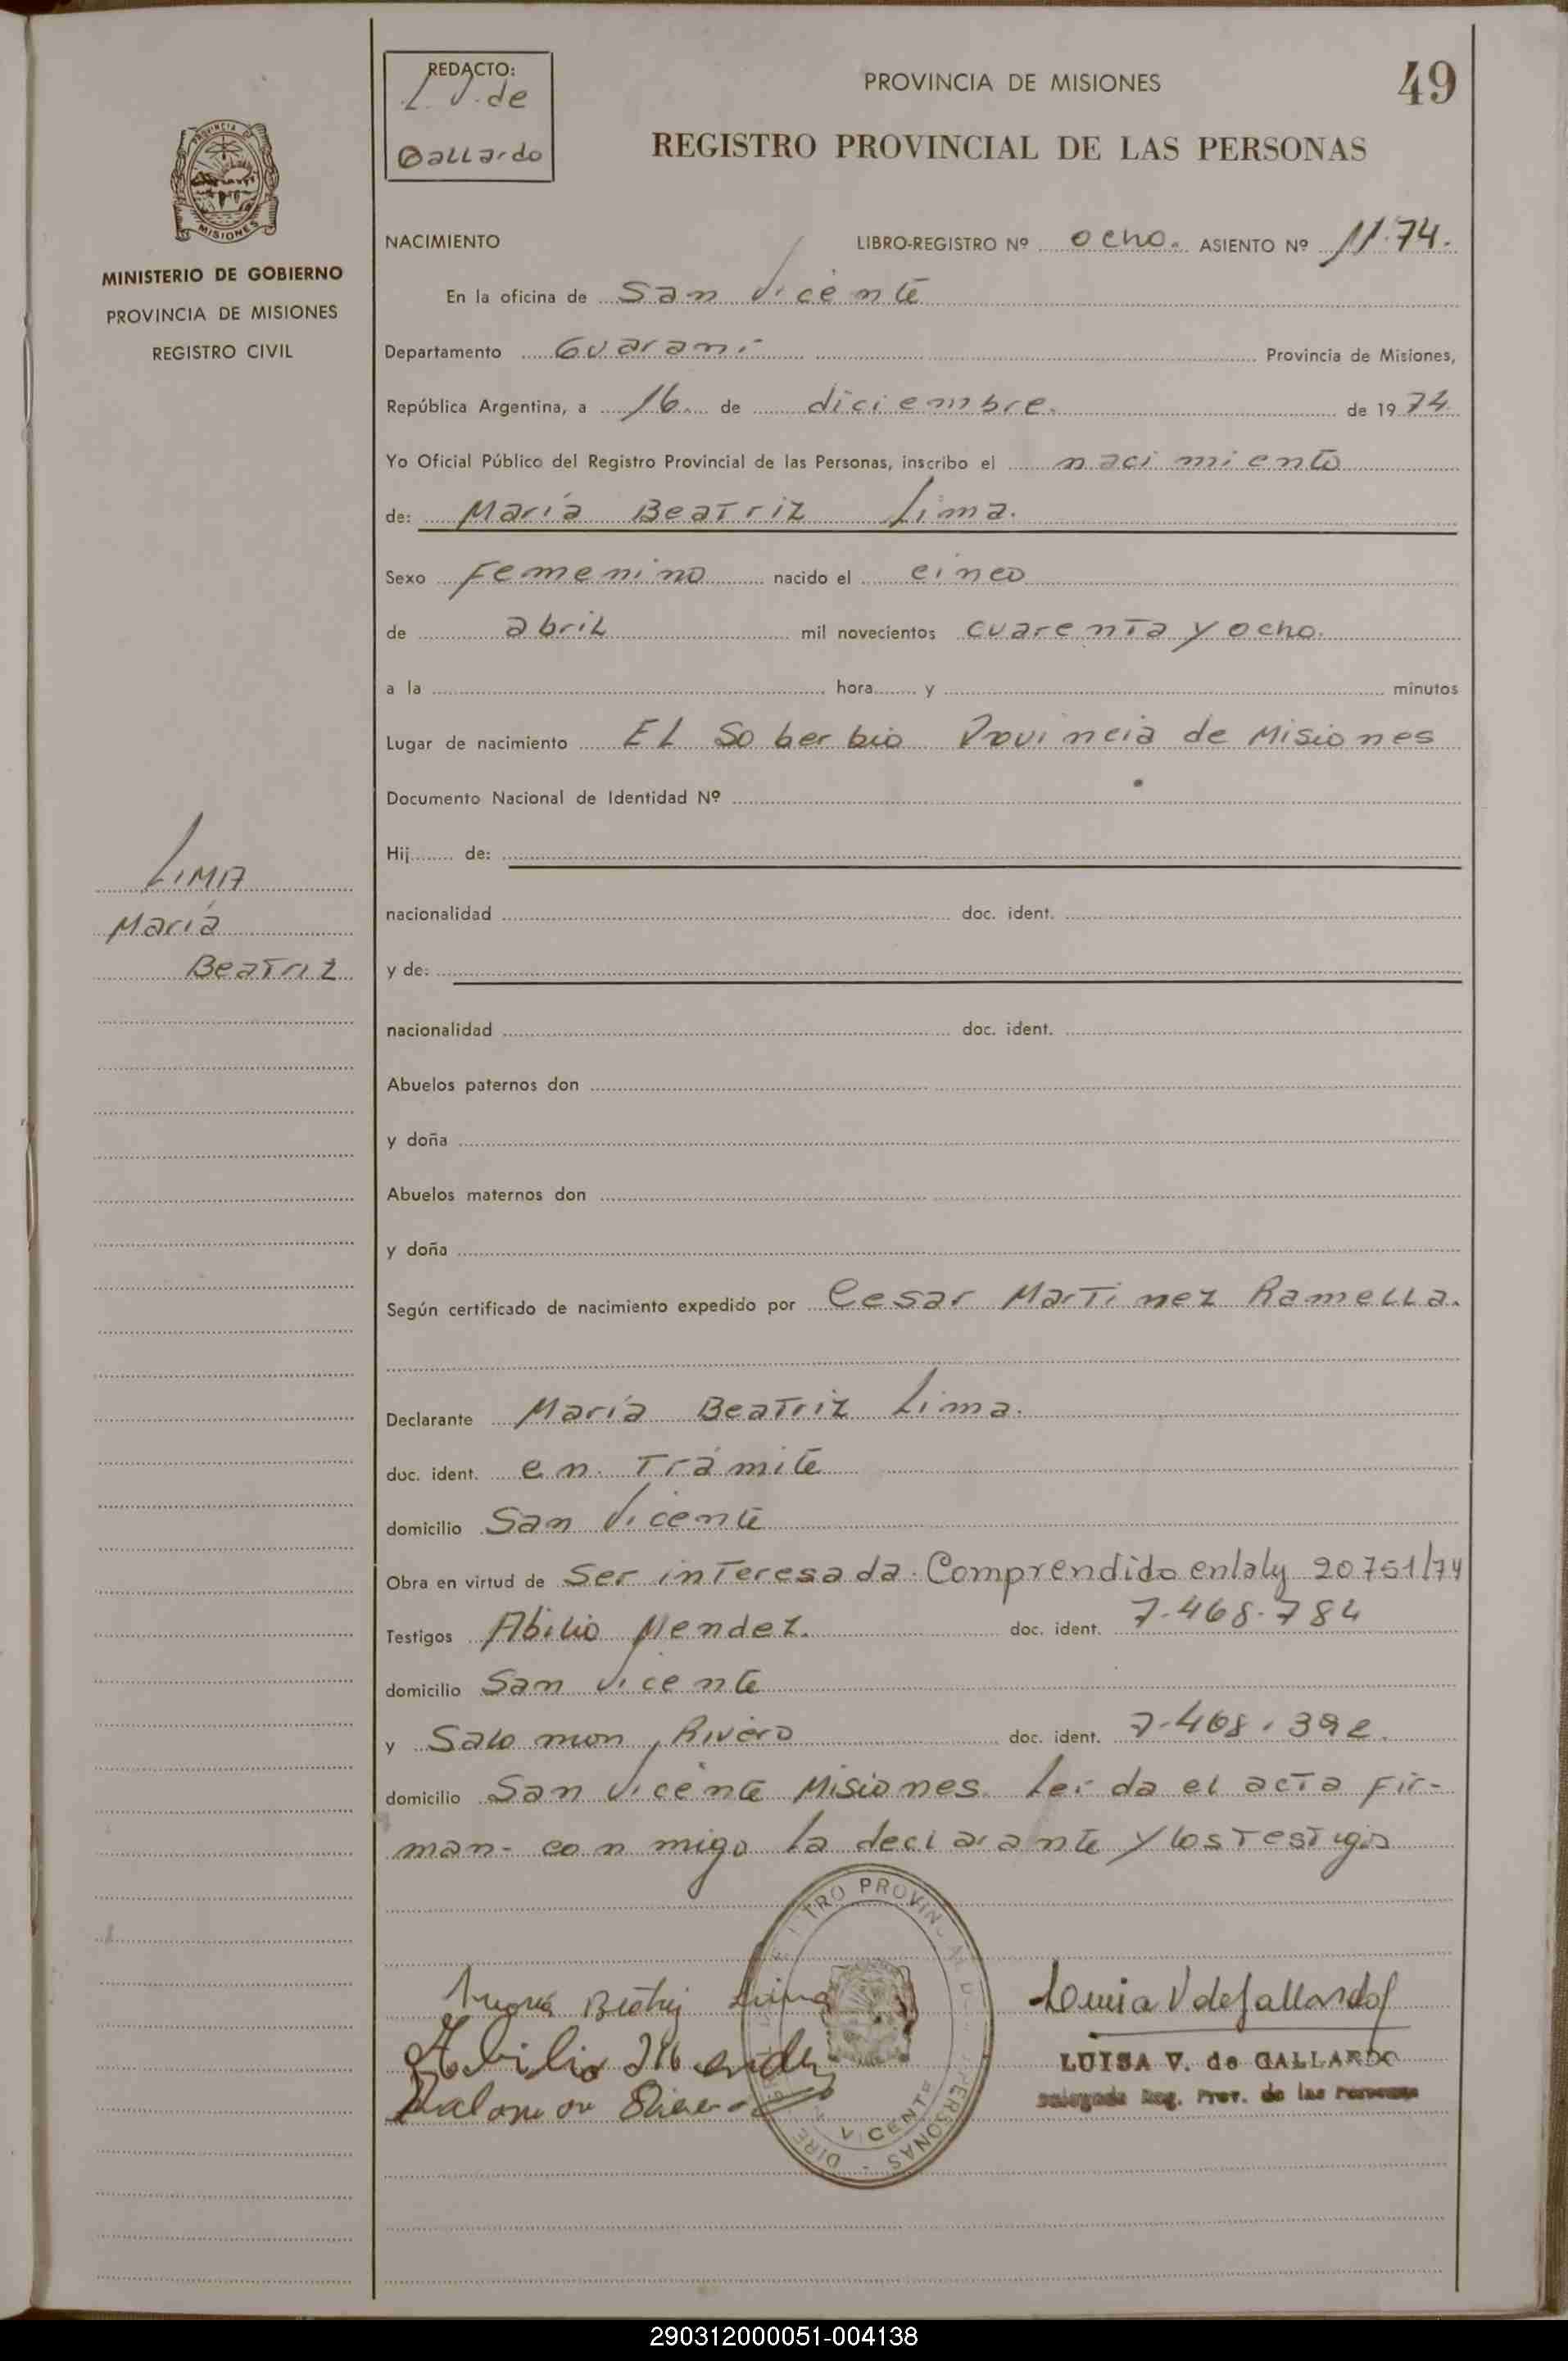 REDACTO:
L V. de
Gallardo
PROVINCIA DE MISIONES
49
REGISTRO PROVINCIAL DE LAS PERSONAS
PROVINCIA DE
MISIONES
MINISTERIO DE GOBIERNO
PROVINCIA DE MISIONES
REGISTRO CIVIL
NACIMIENTO LIBRO-REGISTRO Nº ocho. ASIENTO Nº 1174.
En la oficina de San Vicente
Departamento Guaraní Provincia de Misiones,
República Argentina, a 16 de diciembre. de 1974
Yo Oficial Público del Registro Provincial de las Personas, inscribo el nacimiento
de: María Beatriz Lima.
Sexo Femenino nacido el cinco
de abril mil novecientos cuarenta y ocho.
a la hora y minutos
Lugar de nacimiento El Soberbio Provincia de Misiones
Documento Nacional de Identidad Nº
Hij de:
LIMA
María
Beatriz
nacionalidad doc. ident.
y de:
nacionalidad doc. ident.
Abuelos paternos don
y doña
Abuelos maternos don
y doña
Según certificado de nacimiento expedido por Cesar Martinez Ramella.
Declarante María Beatriz Lima.
doc. ident. en Trámite
domicilio San Vicente
Obra en virtud de Ser interesada. Comprendido en la ley 20751/74
Testigos Abilio Mendez. doc. ident. 7.468.784
domicilio San Vicente
y Salomon Rivero doc. ident. 7.468.392.
domicilio San Vicente Misiones. Leida el acta fir-
man- conmigo la declarante y los testigos
María Beatriz Lima
Abilio Mendez
Salomon Rivero
Luisa V de Gallardo
LUISA V. de GALLARDO
Delegada Reg. Prov. de las Personas
290312000051-004138